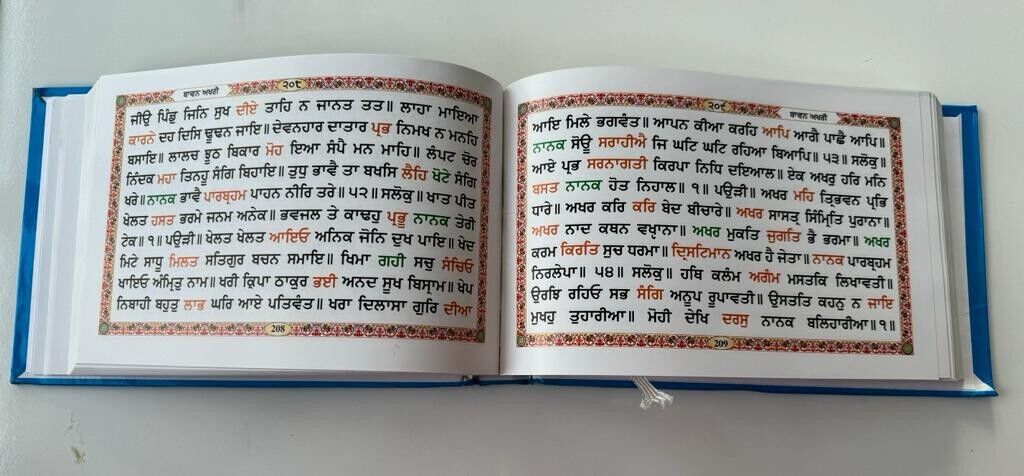 ੨੦੮
ਬਾਵਨ ਅਖਰੀ
ਜੀਉ ਪਿੰਡੁ ਜਿਨਿ ਸੁਖ ਦੀਏ ਤਾਹਿ ਨ ਜਾਨਤ ਤਤ॥ ਲਾਹਾ ਮਾਇਆ
ਕਾਰਨੇ ਦਹ ਦਿਸਿ ਢੂਢਨ ਜਾਇ॥ ਦੇਵਨਹਾਰ ਦਾਤਾਰ ਪ੍ਰਭ ਨਿਮਖ ਨ ਮਨਹਿ
ਬਸਾਇ॥ ਲਾਲਚ ਝੂਠ ਬਿਕਾਰ ਮੋਹ ਇਆ ਸੰਪੈ ਮਨ ਮਾਹਿ॥ ਲੰਪਟ ਚੋਰ
ਨਿੰਦਕ ਮਹਾ ਤਿਨਹੂ ਸੰਗਿ ਬਿਹਾਇ॥ ਤੁਧੁ ਭਾਵੈ ਤਾ ਬਖਸਿ ਲੈਹਿ ਖੋਟੇ ਸੰਗਿ
ਖਰੇ॥ ਨਾਨਕ ਭਾਵੈ ਪਾਰਬ੍ਰਹਮ ਪਾਹਨ ਨੀਰਿ ਤਰੇ॥ ੫੨॥ ਸਲੋਕੁ॥ ਖਾਤ ਪੀਤ
ਖੇਲਤ ਹਸਤ ਭਰਮੇ ਜਨਮ ਅਨੇਕ॥ ਭਵਜਲ ਤੇ ਕਾਢਹੁ ਪ੍ਰਭੂ ਨਾਨਕ ਤੇਰੀ
ਟੇਕ॥ ੧॥ ਪਉੜੀ॥ ਖੇਲਤ ਖੇਲਤ ਆਇਓ ਅਨਿਕ ਜੋਨਿ ਦੁਖ ਪਾਇ॥ ਖੇਦ
ਮਿਟੇ ਸਾਧੂ ਮਿਲਤ ਸਤਿਗੁਰ ਬਚਨ ਸਮਾਇ॥ ਖਿਮਾ ਗਹੀ ਸਚੁ ਸੰਚਿਓ
ਖਾਇਓ ਅੰਮ੍ਰਿਤੁ ਨਾਮ॥ ਖਰੀ ਕ੍ਰਿਪਾ ਠਾਕੁਰ ਭਈ ਅਨਦ ਸੂਖ ਬਿਸ੍ਰਾਮ॥ ਖੇਪ
ਨਿਬਾਹੀ ਬਹੁਤੁ ਲਾਭ ਘਰਿ ਆਏ ਪਤਿਵੰਤ॥ ਖਰਾ ਦਿਲਾਸਾ ਗੁਰਿ ਦੀਆ
208
੨੦੯
ਬਾਵਨ ਅਖਰੀ
ਆਇ ਮਿਲੇ ਭਗਵੰਤ॥ ਆਪਨ ਕੀਆ ਕਰਹਿ ਆਪਿ ਆਗੈ ਪਾਛੈ ਆਪਿ॥
ਨਾਨਕ ਸੋਊ ਸਰਾਹੀਐ ਜਿ ਘਟਿ ਘਟਿ ਰਹਿਆ ਬਿਆਪਿ॥ ੫੩॥ ਸਲੋਕੁ॥
ਆਏ ਪ੍ਰਭ ਸਰਨਾਗਤੀ ਕਿਰਪਾ ਨਿਧਿ ਦਇਆਲ॥ ਏਕ ਅਖਰੁ ਹਰਿ ਮਨਿ
ਬਸਤ ਨਾਨਕ ਹੋਤ ਨਿਹਾਲ॥ ੧॥ ਪਉੜੀ॥ ਅਖਰ ਮਹਿ ਤ੍ਰਿਭਵਨ ਪ੍ਰਭਿ
ਧਾਰੇ॥ ਅਖਰ ਕਰਿ ਕਰਿ ਬੇਦ ਬੀਚਾਰੇ॥ ਅਖਰ ਸਾਸਤ੍ਰ ਸਿੰਮ੍ਰਿਤਿ ਪੁਰਾਨਾ॥
ਅਖਰ ਨਾਦ ਕਥਨ ਵਖ੍ਯਾਨਾ॥ ਅਖਰ ਮੁਕਤਿ ਜੁਗਤਿ ਭੈ ਭਰਮਾ॥ ਅਖਰ
ਕਰਮ ਕਿਰਤਿ ਸੁਚ ਧਰਮਾ॥ ਦ੍ਰਿਸਟਿਮਾਨ ਅਖਰ ਹੈ ਜੇਤਾ॥ ਨਾਨਕ ਪਾਰਬ੍ਰਹਮ
ਨਿਰਲੇਪਾ॥ ੫੪॥ ਸਲੋਕੁ॥ ਹਥਿ ਕਲੰਮ ਅਗੰਮ ਮਸਤਕਿ ਲਿਖਾਵਤੀ॥
ਉਰਝਿ ਰਹਿਓ ਸਭ ਸੰਗਿ ਅਨੂਪ ਰੂਪਾਵਤੀ॥ ਉਸਤਤਿ ਕਹਨੁ ਨ ਜਾਇ
ਮੁਖਹੁ ਤੁਹਾਰੀਆ॥ ਮੋਹੀ ਦੇਖਿ ਦਰਸੁ ਨਾਨਕ ਬਲਿਹਾਰੀਆ॥੧॥
209